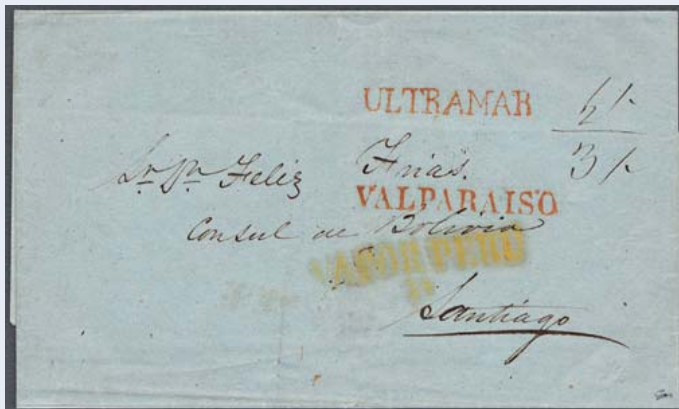 ULTRAMAR
3/-
Sr. Dn. Feliz Frias.
VALPARAISO
Consul de Bolivia
VAPOR PERU
Santiago